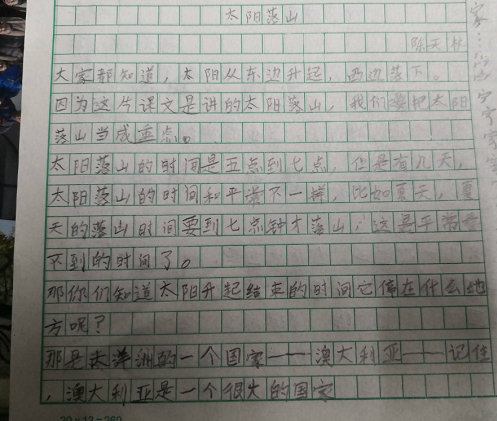 太阳落山
陈天
大家都知道，太阳从东边升起，西边落下。
因为这片课文是讲的太阳落山，我们要把太阳
落山当成重点。
太阳落山的时间是五点到七点，但是有几天，
太阳落山的时间和平常不一样，比如夏天，夏
天的落山时间要到七点钟才落山，这是平常看
不到的时间了。
那你们知道太阳升起结束的时间它停在什么地
方呢？
那是大洋洲的一个国家——澳大利亚——记住
，澳大利亚是一个很大的国家